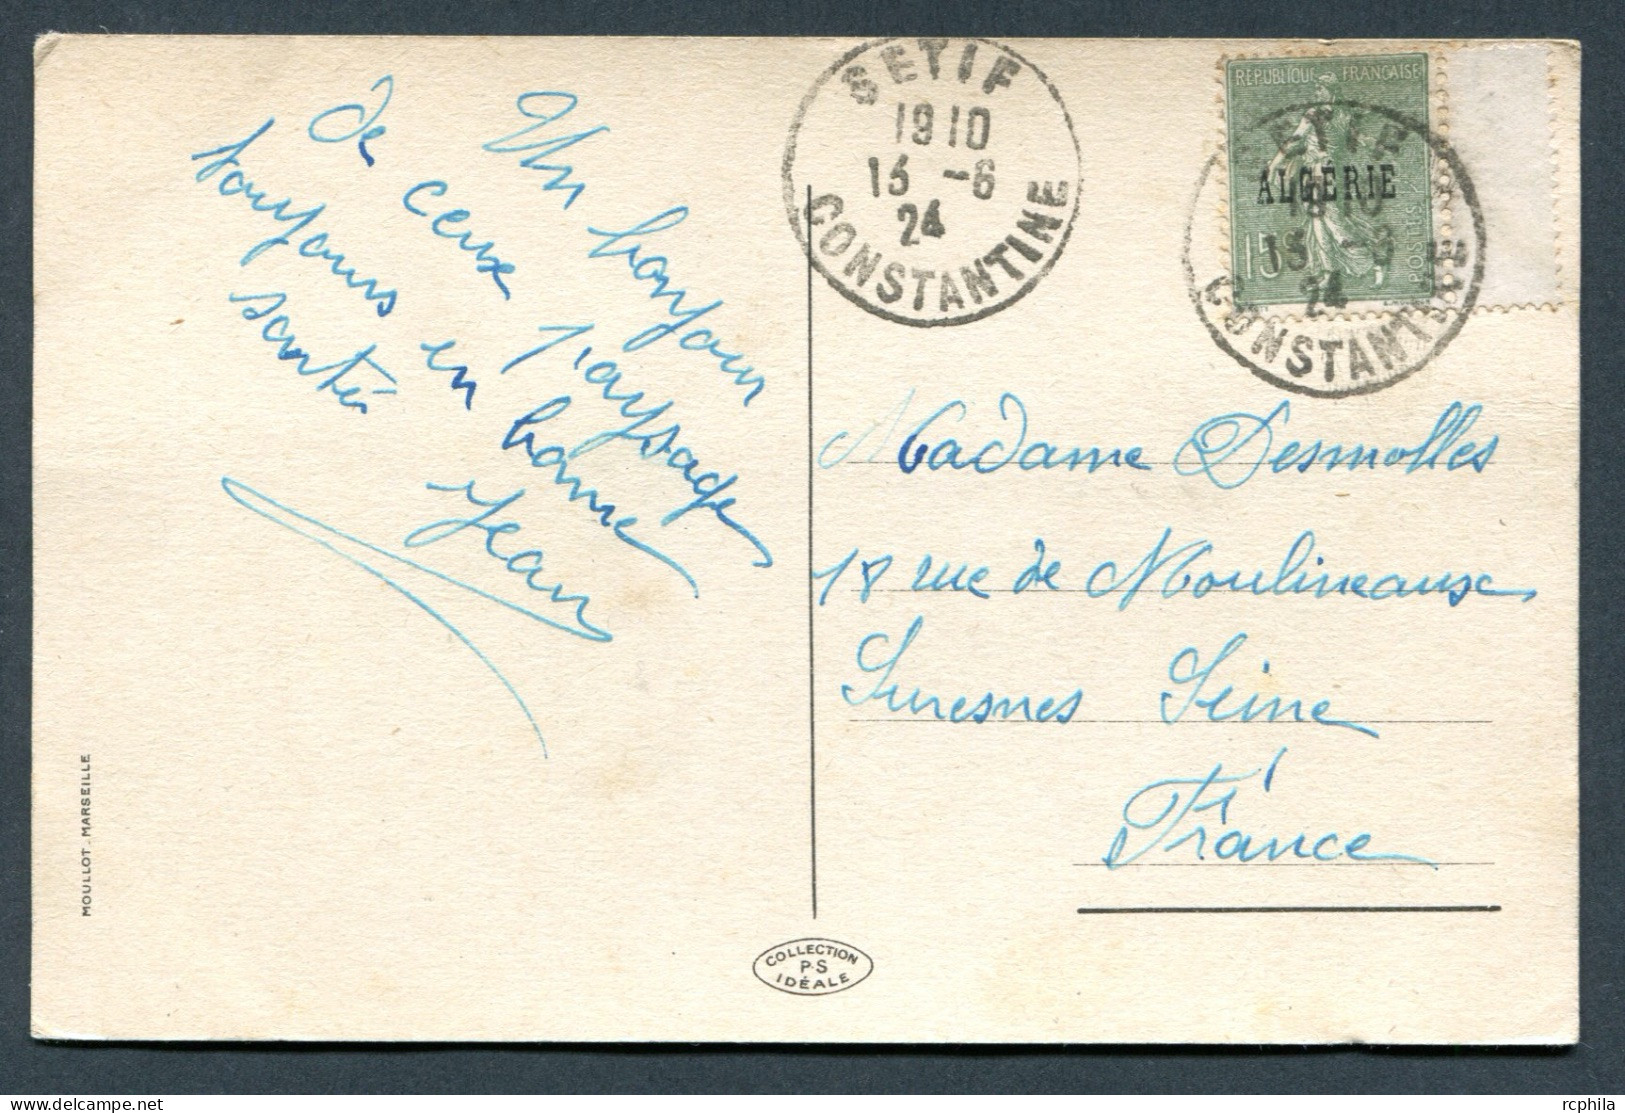 Un bonjour
de ceux paysage
toujours en bonne
santé
Jean
SETIF
1910
13 -6
24
CONSTANTINE
RÉPUBLIQUE FRANÇAISE
ALGÉRIE
15
POSTES
SETIF
1910
13 -6
24
CONSTANTINE
Madame Desmolles
18 rue de Moulineaux
Suresnes Seine
France
MOULLOT _ MARSEILLE
COLLECTION
P.S
IDÉALE
rcphila